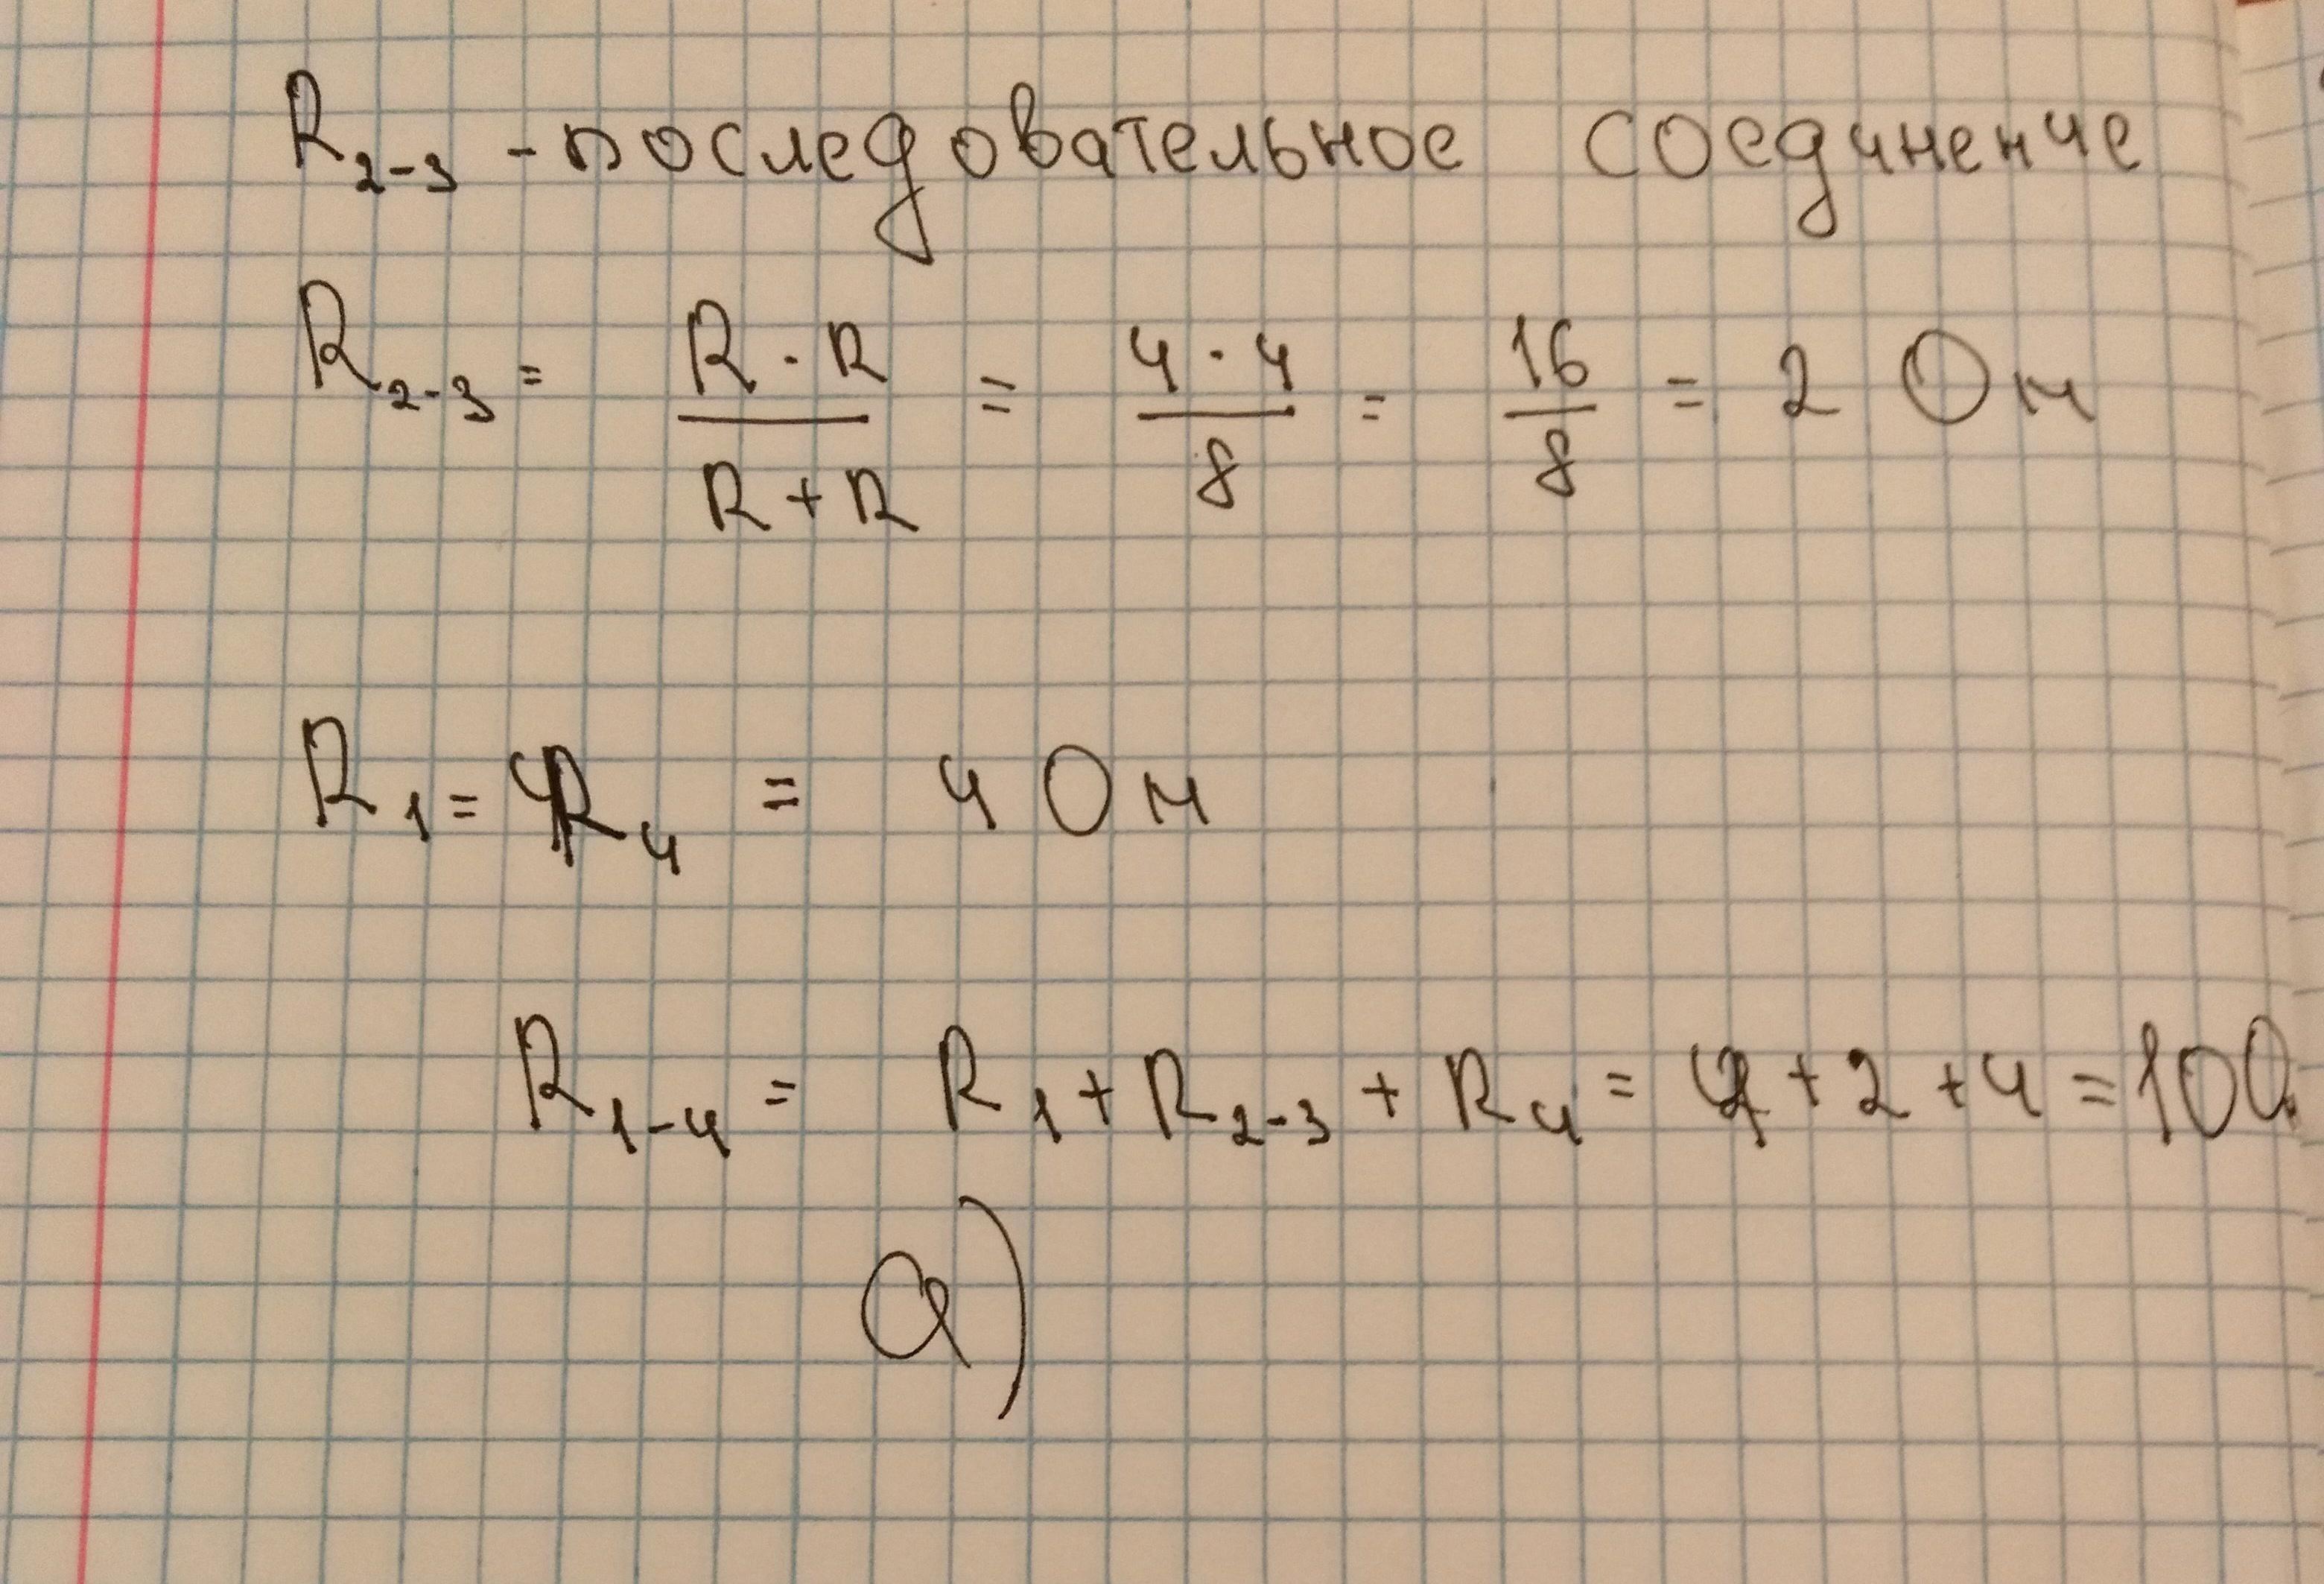 R₂₋₃ - последовательное соединение
R₂₋₃ = (R · R) / (R + R) = (4 · 4) / 8 = 16 / 8 = 2 Ом
R₁ = R₄ = 4 Ом
R₁₋₄ = R₁ + R₂₋₃ + R₄ = 4 + 2 + 4 = 10 О
а)